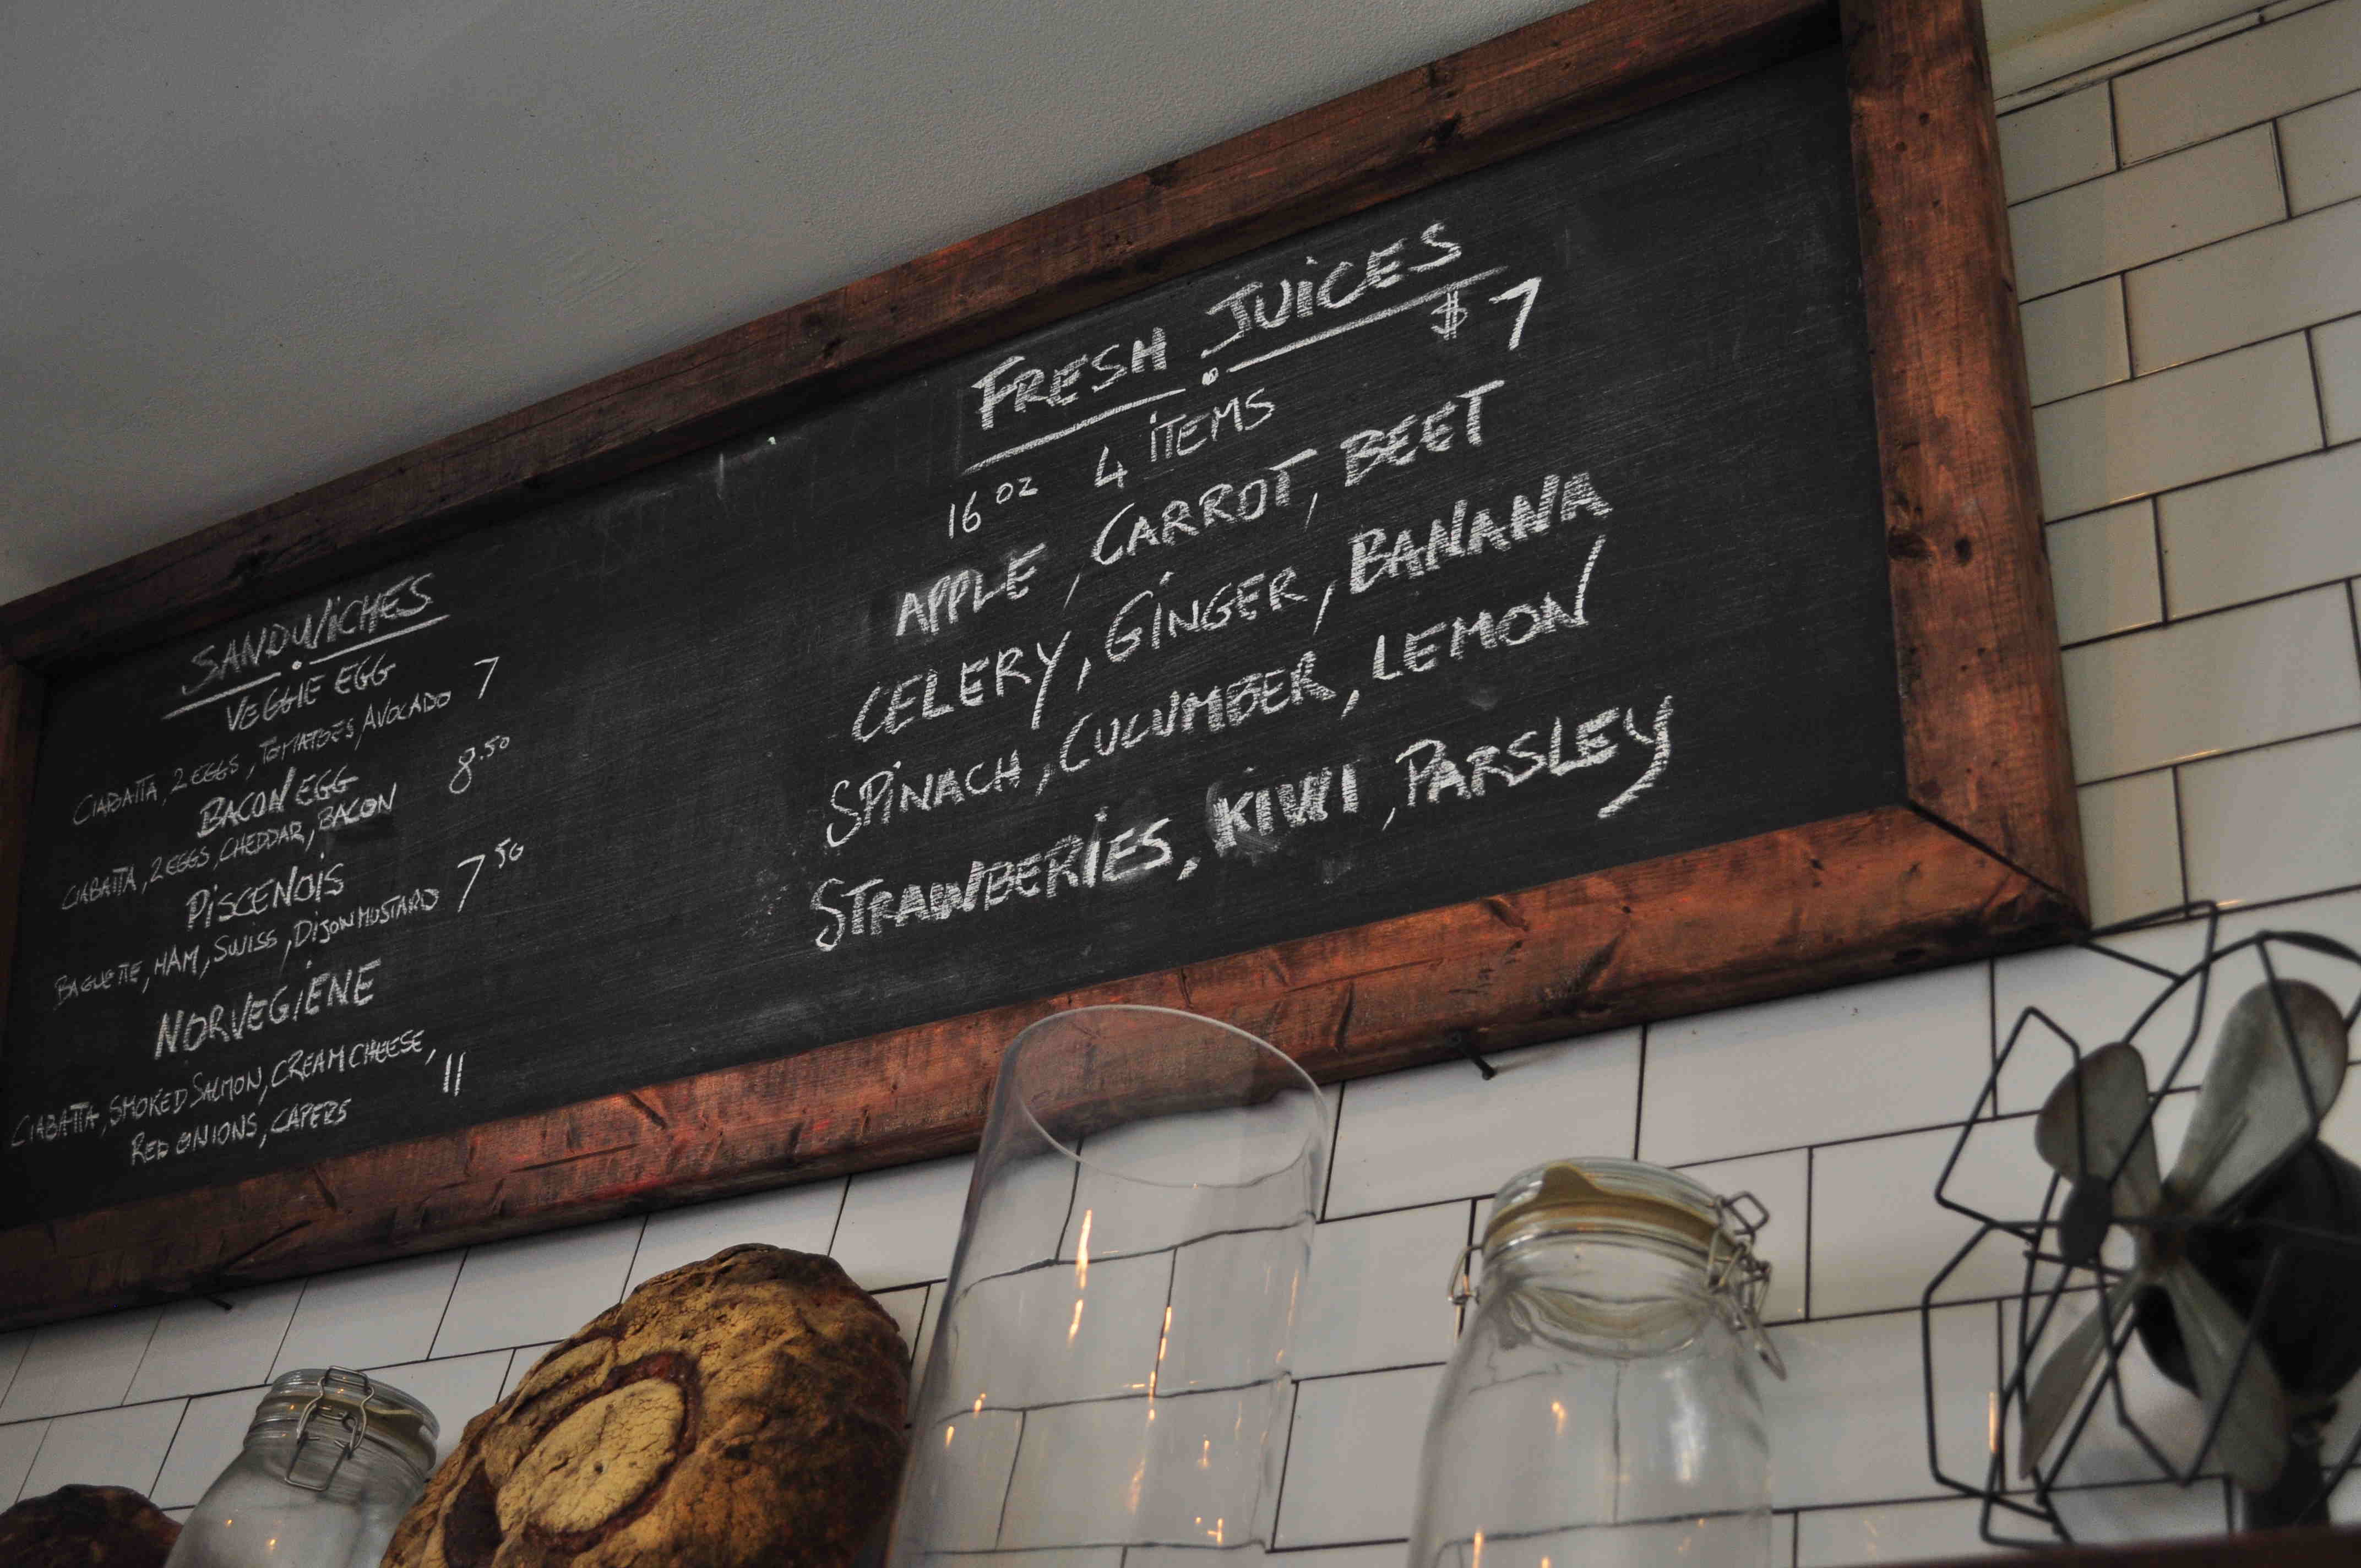 SANDWiCHES
VEGGIE EGG
CIABATTA, 2 EGGS, TOMATOES, AVOCADO 7
BACON EGG
CIABATTA, 2 EGGS, CHEDDAR, BACON 8.50
PiSCENOiS
BAGUETTE, HAM, SWISS, DiJON MUSTARD 7 50
NORVEGIENE
CIABATTA, SMOKED SALMON, CREAM CHEESE,
RED ONIONS, CAPERS 11
FRESH JUiCES
16 oz 4 iTEMS $7
APPLE, CARROT, BEET
CELERY, GiNGER, BANANA
SPiNACH, CUCUMBER, LEMON
STRAWBERiES, KIWI, PARSLEY